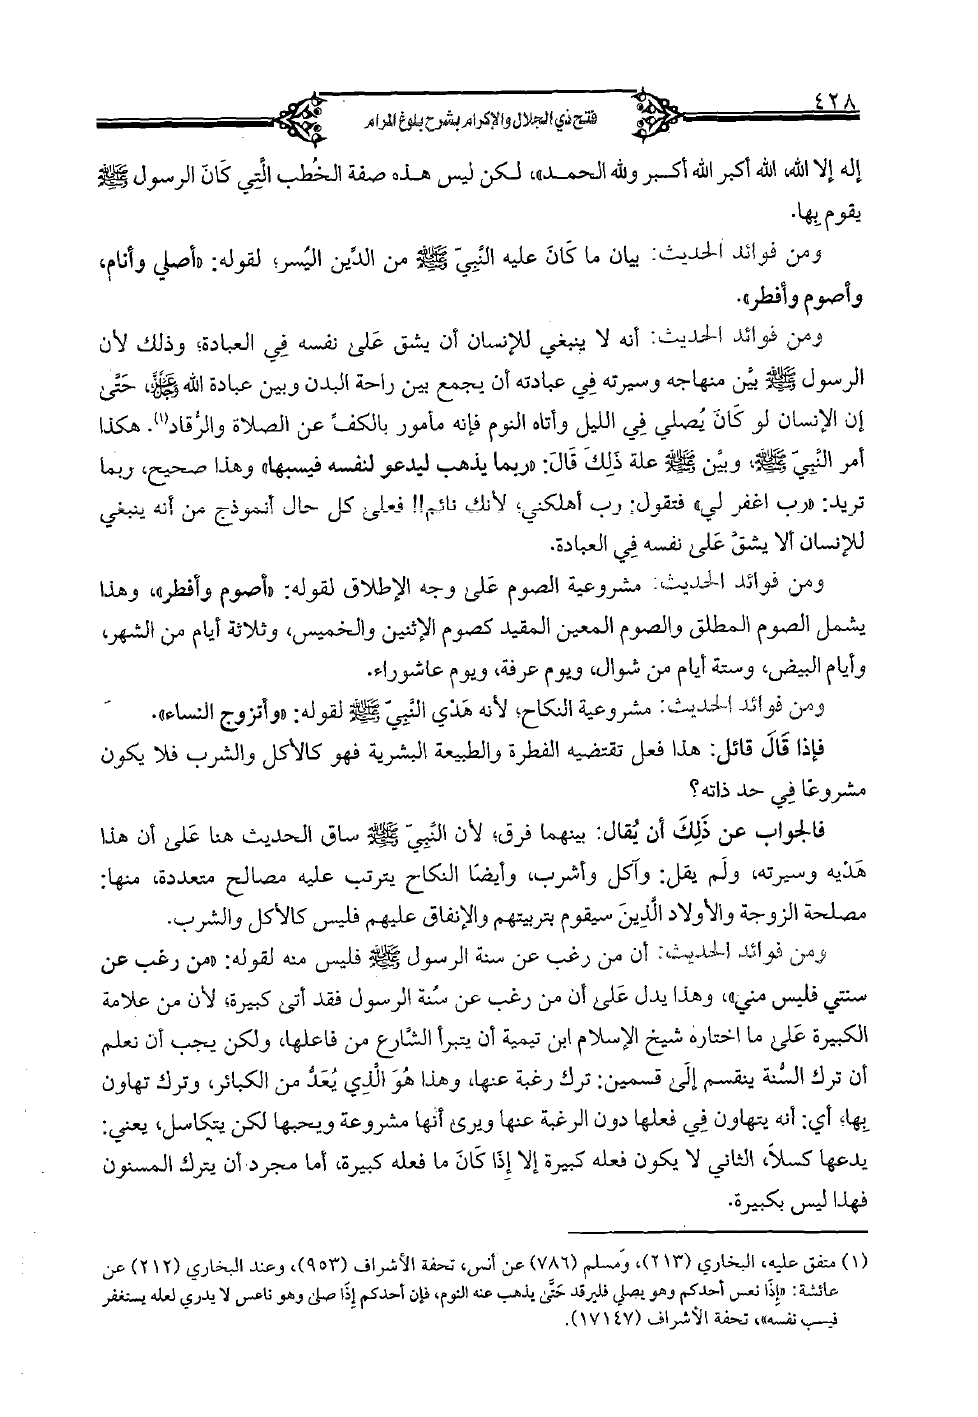 ٤٢٨
فتح ذي الجلال والإكرام بشرح بلوغ المرام
إله إلا الله، الله أكبر الله أكبر ولله الحمد»، لكن ليس هذه صفة الخُطب الَّتِي كَانَ الرسول ﷺ
يقوم بِها.
ومن فوائد الحديث: بيان ما كَانَ عليه النَّبِيّ ﷺ من الدِّين اليُسر؛ لقوله: «أصلي وأنام،
وأصوم وأفطر».
ومن فوائد الحديث: أنه لا ينبغي للإنسان أن يشق عَلَى نفسه فِي العبادة؛ وذلك لأن
الرسول ﷺ بيَّن منهاجه وسيرته فِي عبادته أن يجمع بين راحة البدن وبين عبادة الله عَزَّوَجَلَّ، حَتَّى
إن الإنسان لو كَانَ يُصلي فِي الليل وأتاه النوم فإنه مأمور بالكفِّ عن الصلاة والرُّقاد(١). هكذا
أمر النَّبِيّ ﷺ، وبيَّن ﷺ علة ذَلِكَ قَالَ: «ربما يذهب ليدعو لنفسه فيسبها» وهذا صحيح، ربما
تريد: «رب اغفر لي» فتقول: رب أهلكني؛ لأنك نائم!! فعلى كل حال أنموذج من أنه ينبغي
للإنسان ألا يشقَّ عَلَى نفسه فِي العبادة.
ومن فوائد الحديث: مشروعية الصوم عَلَى وجه الإطلاق لقوله: «أصوم وأفطر»، وهذا
يشمل الصوم المطلق والصوم المعين المقيد كصوم الإثنين والخميس، وثلاثة أيام من الشهر،
وأيام البيض، وستة أيام من شوال، ويوم عرفة، ويوم عاشوراء.
ومن فوائد الحديث: مشروعية النكاح؛ لأنه هَدْي النَّبِيّ ﷺ لقوله: «وأتزوج النساء».
فإذا قَالَ قائل: هذا فعل تقتضيه الفطرة والطبيعة البشرية فهو كالأكل والشرب فلا يكون
مشروعًا فِي حد ذاته؟
فالجواب عن ذَلِكَ أن يُقال: بينهما فرق؛ لأن النَّبِيّ ﷺ ساق الحديث هنا عَلَى أن هذا
هَدْيه وسيرته، ولَم يقل: وآكل وأشرب، وأيضًا النكاح يترتب عليه مصالح متعددة، منها:
مصلحة الزوجة والأولاد الَّذِينَ سيقوم بتربيتهم والإنفاق عليهم فليس كالأكل والشرب.
ومن فوائد الحديث: أن من رغب عن سنة الرسول ﷺ فليس منه لقوله: «من رغب عن
سنتي فليس مني»، وهذا يدل عَلَى أن من رغب عن سُنة الرسول فقد أتى كبيرة؛ لأن من علامة
الكبيرة عَلَى ما اختاره شيخ الإسلام ابن تيمية أن يتبرأ الشَّارع من فاعلها، ولكن يجب أن نعلم
أن ترك السُّنة ينقسم إلَى قسمين: ترك رغبة عنها، وهذا هُوَ الَّذِي يُعَدُّ من الكبائر، وترك تهاون
بِها؛ أي: أنه يتهاون فِي فعلها دون الرغبة عنها ويرى أنها مشروعة ويحبها لكن يتكاسل، يعني:
يدعها كسلاً، الثاني لا يكون فعله كبيرة إلا إِذَا كَانَ ما فعله كبيرة، أما مجرد أن يترك المسنون
فهذا ليس بكبيرة.
(١) متفق عليه، البخاري (٢١٣)، ومسلم (٧٨٦) عن أنس، تحفة الأشراف (٩٥٣)، وعند البخاري (٢١٢) عن
عائشة: «إِذَا نعس أحدكم وهو يصلي فليرقد حَتَّى يذهب عنه النوم، فإن أحدكم إِذَا صلى وهو ناعس لا يدري لعله يستغفر
فيسب نفسه»، تحفة الأشراف (١٧١٤٧).